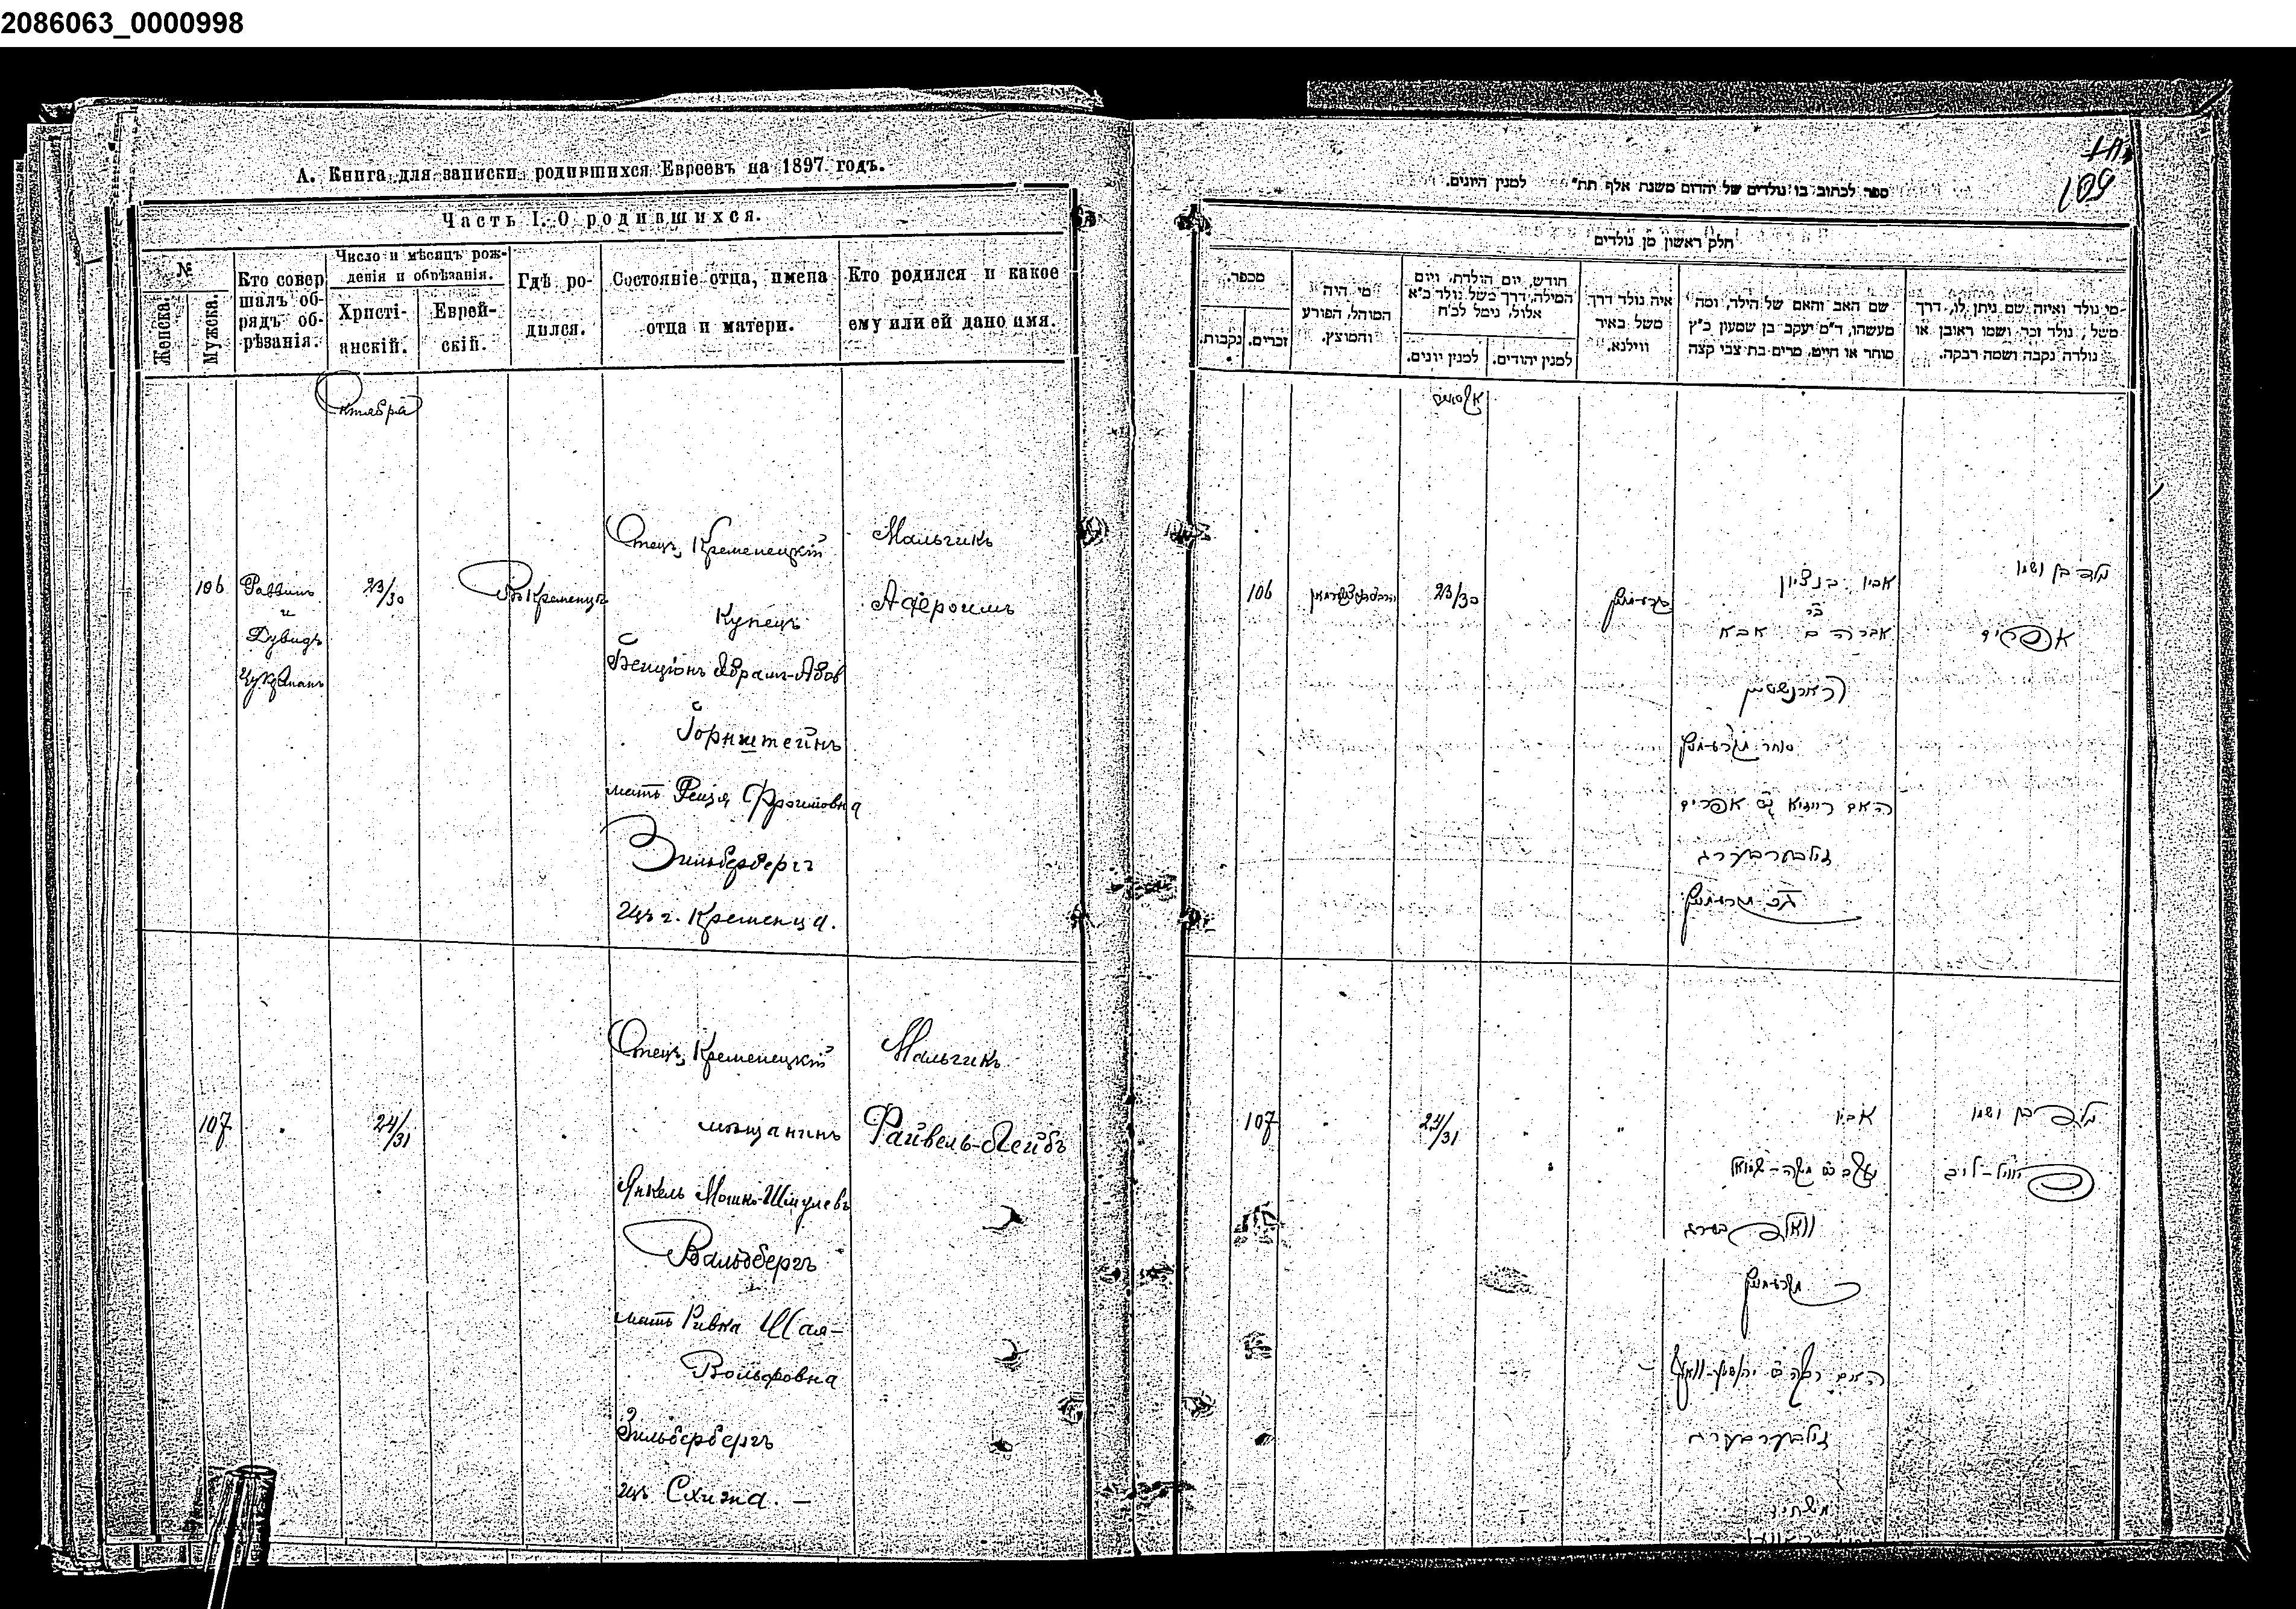 2086063_0000998
А. Книга для записки родившихся Евреевъ на 1897 годъ.
Часть I. О родившихся.
№
Женска.
Мужска.
Кто совер
шалъ об-
рядъ об-
рѣзанія.
Число и мѣсяцъ рож-
денія и обрѣзанія.
Христі-
анскій.
Еврей-
скій.
Гдѣ ро-
дился.
Состояніе отца, имена
отца и матери.
Кто родился и какое
ему или ей дано имя.
Октября
106
Раввинъ
и
Дувидъ
Цукрманъ
23/30
Въ Кременцѣ
Отецъ, Кременецкій
Купецъ
Бенціонъ Абрам-Абов
Горнштейнъ
мать Рейзя Фроимовна
Зильберберг
изъ г. Кременца.
Мальчикъ
Афроимъ
107
24/31
Отецъ, Кременецкій
мѣщанинъ
Янкель Мошко-Шмулевъ
Вальдбергъ
мать Ривка Шая-
Вольфовна
Зильбербергъ
изъ Схижа. —
Мальчикъ
Файвель-Лейбъ
109
ספר לכתוב בו נולדים של יהדום משנת אלף תת״ למנין היונים.
חלק ראשון מן נולדים
מי נולד ואיזה שם ניתן לו, דרך
משל, נולד זכר, ושמו ראובן או
נולדה נקבה ושמה רבקה.
שם האב והאם של הילד, ומה
מעשהו, ד״מ יעקב בן שמעון כ״ץ
סוחר או חייט, מרים בת צבי קצה
איה נולד דרך
משל באיר
ווילנא.
חודש, יום הולדת, ויום
המילה, דרך משל נולד כ״א
אלול, נימל לכ״ח
למנין יהודים.
למנין יונים.
מי היה
המוהל, הפורע
והמוצץ.
מספר.
זכרים.
נקבות.
106
23/30
ילד בן ושמו
אפרים
אביו בנציון
בר
אברהם אבא
הארנשטיין
סוחר מקרעמניץ
האם רייזיא בת אפרים
זילבערבערג
107
24/31
ילד בן ושמו
פייוויל-לייב
אביו
יעקב בר משה-שמואל
וואלדבערג
מקרעמניץ
זילבערבערג